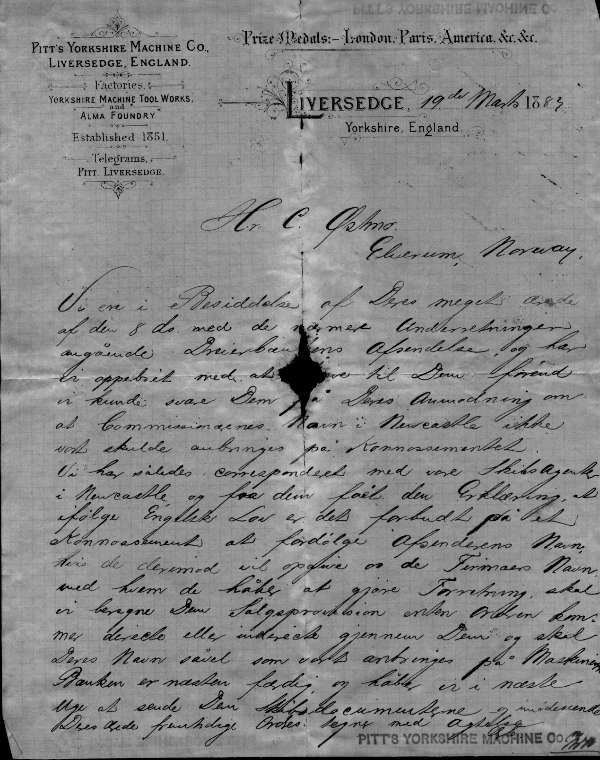 PITT'S YORKSHIRE MACHINE CO
PITT'S YORKSHIRE MACHINE CO.,
LIVERSEDGE, ENGLAND.
Factories,
YORKSHIRE MACHINE TOOL WORKS,
and
ALMA FOUNDRY
Established 1851.
Telegrams,
PITT. LIVERSEDGE.
Prize Medals:- London, Paris, America, &c. &c.
LIVERSEDGE, 19de Marts 1883
Yorkshire, England
Hr. C. Østmo.
Elverum, Norway.
Vi ere i Besiddelse af Deres meget ærede
af den 8 ds. med de nærmere Underretninger
angående Dreierbænkens Afsendelse, og har
vi oppebiet med at til Dem førend
vi kunde svare Dem på Deres Anmodning om
at Commissionærens Navn i Newcastle ikke
vort skulde anbringes på Konnossementet.
Vi har således corresponderet med vore Skibs Agenter
i Newcastle og fra dem fået den Erklæring, at
ifølge Engelsk Lov er det forbudt på et
Konnossement at fordølge Afsenderens Navn,
hvis de derimod vil opgive os de Firmaers Navn,
med hvem de håber at gjøre Forretning, skal
vi beregne Dem Salgsprovision enten Ordren kom-
mer directe eller indirecte gjennem Dem og skal
Deres Navn såvel som vort anbringes på Maskinen
Bænken er næsten færdig, og håber vi i næste
Uge at sende Dem Skibsdocumenterne og imødeseende
Deres ærede fremtidige Ordres tegner med Agtelse
PITT'S YORKSHIRE MACHINE CO.